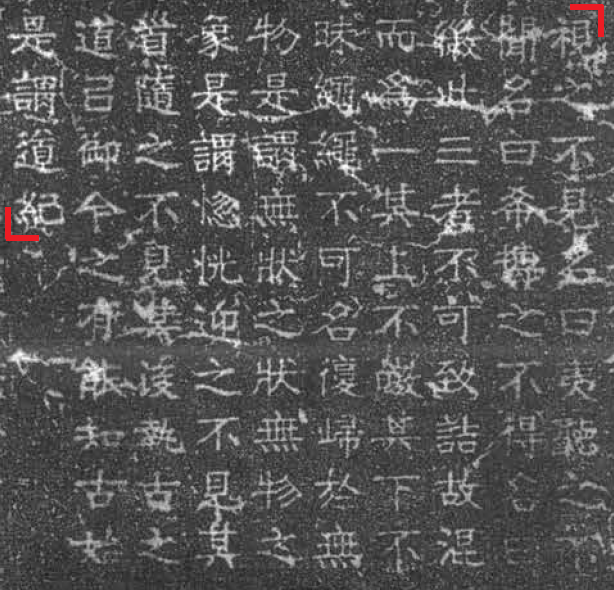 視之不見名曰夷聽之不
聞名曰希搏之不得名曰
微此三者不可致詰故混
而為一其上不皦其下不
昧繩繩不可名復歸於無
物是謂無狀之狀無物之
象是謂惚恍迎之不見其
首隨之不見其後執古之
道㠯御今之有能知古始
是謂道紀